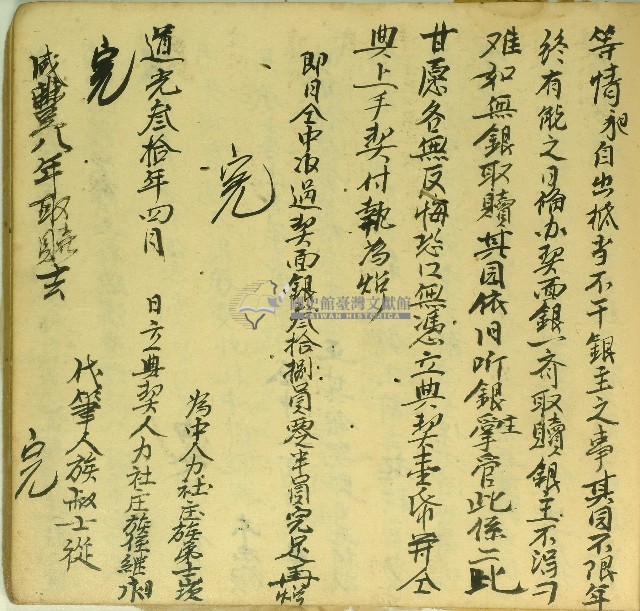 等情永自出抵當不干銀主之事其田不限年
終有能之日備办契面銀一齊取贖銀主不得刁
难如無銀取贖其田依旧听銀主掌管此係二比
甘愿各無反悔恐口無憑立典契壹帋并仝
典上手契付執為炤
即日仝中收過契面銀叁拾捌員零半員完足再炤
完
為中人力社庄族
道光叁拾年四月 日立典契人力社庄族侄繼
完
代筆人族叔士從
咸豐八年取贖去
完
國史館臺灣文獻館
TAIWAN HISTORICA